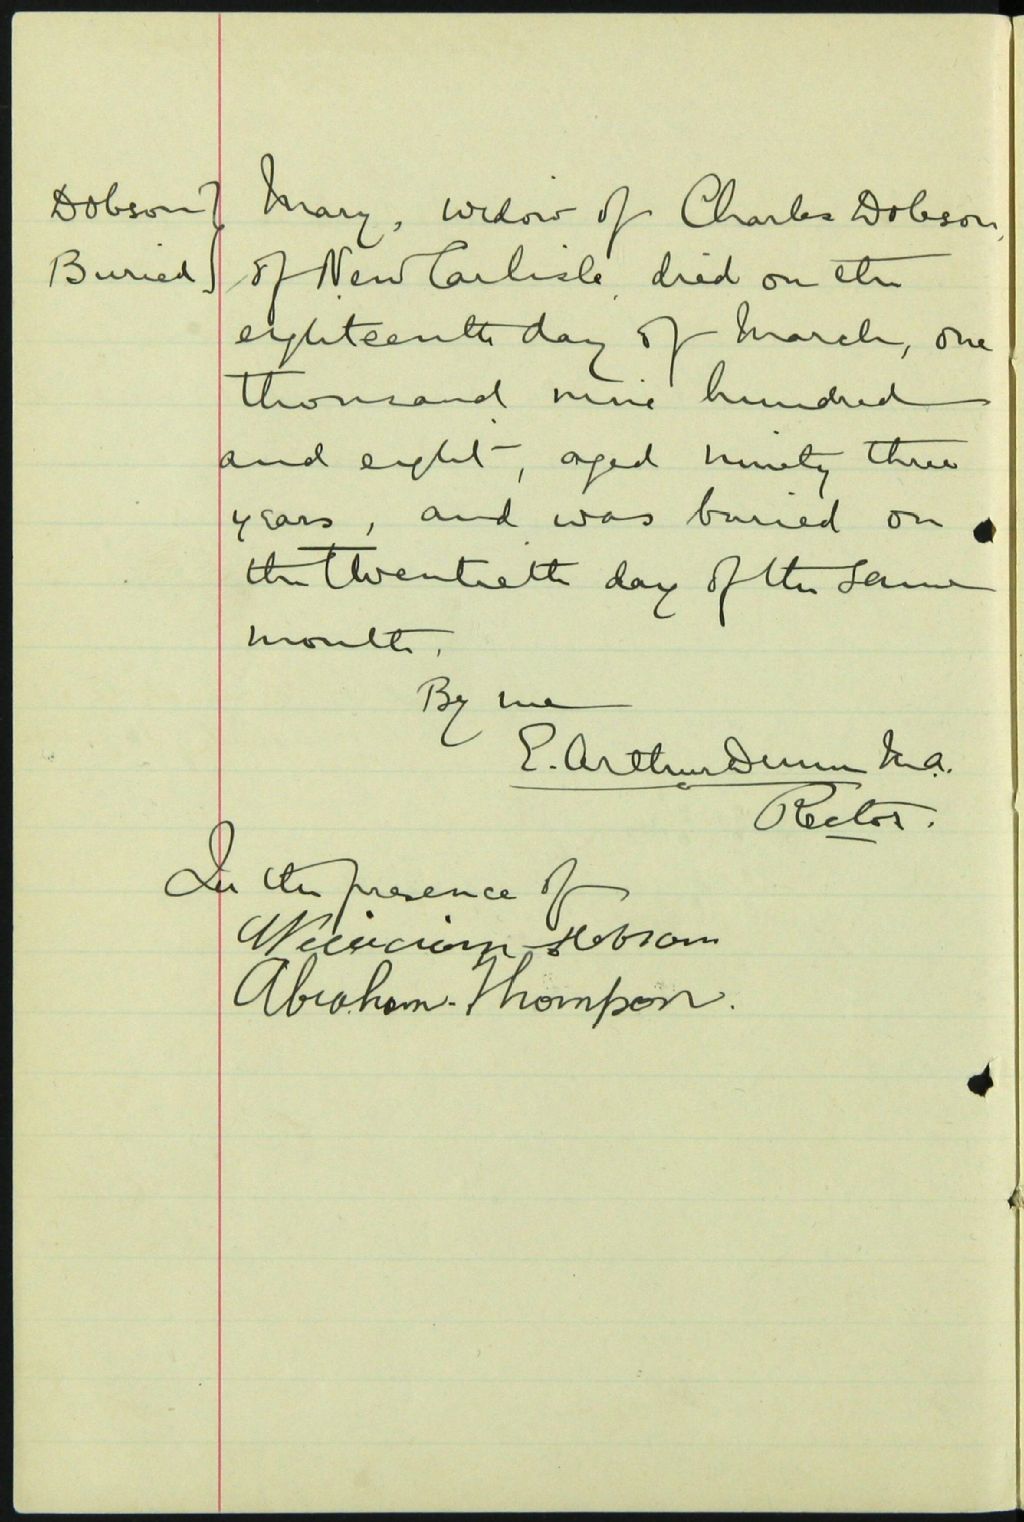 Dobson } Mary, widow of Charles Dobson,
Buried } of New Carlisle, died on the
eighteenth day of March, one
thousand nine hundred
and eight, aged ninety three
years, and was buried on
the twentieth day of the same
month.
By me
E. Arthur Dunn M.A.
Rector.
In the presence of
Abraham Thompson.